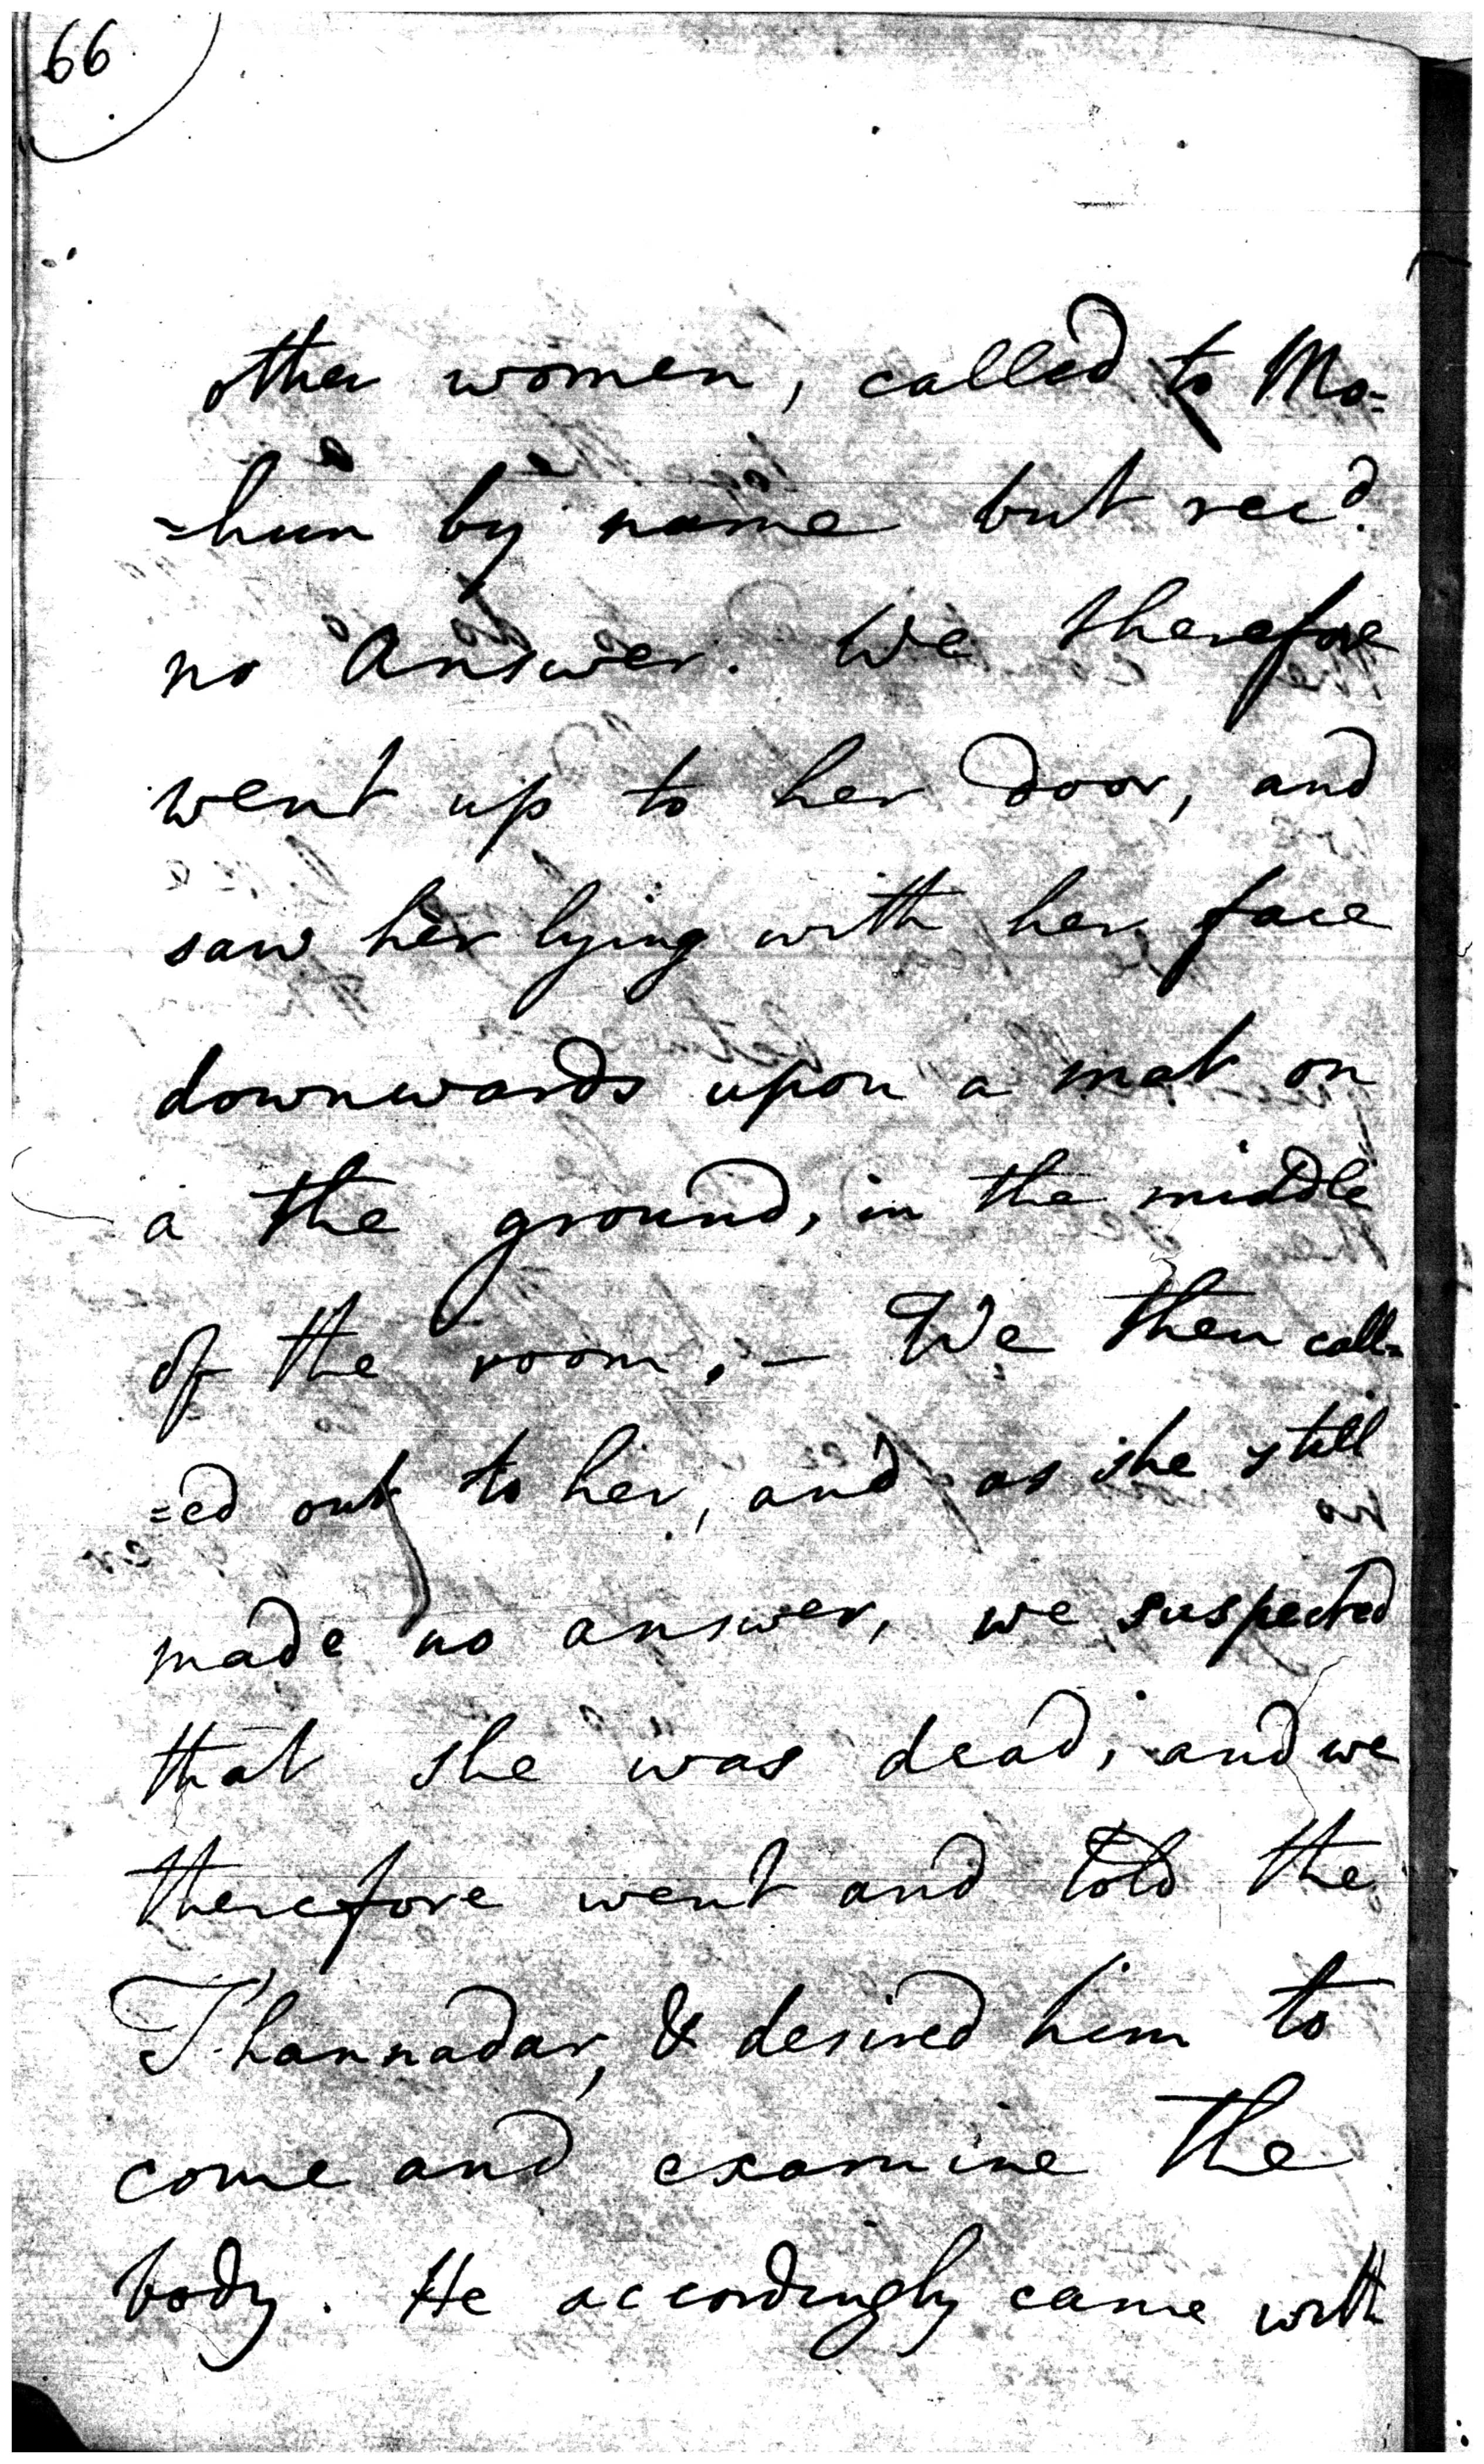 66
other women, called to Mo=
=hun by name but recd.
no answer. We therefore
went up to her door, and
saw her lying with her face
downwards upon a mat on
a the ground, in the middle
of the room. — We then call=
=ed out to her, and as she still
made no answer, we suspected
that she was dead, and we
therefore went and told the
Thannadar, & desired him to
come and examine the
body. He accordingly came with